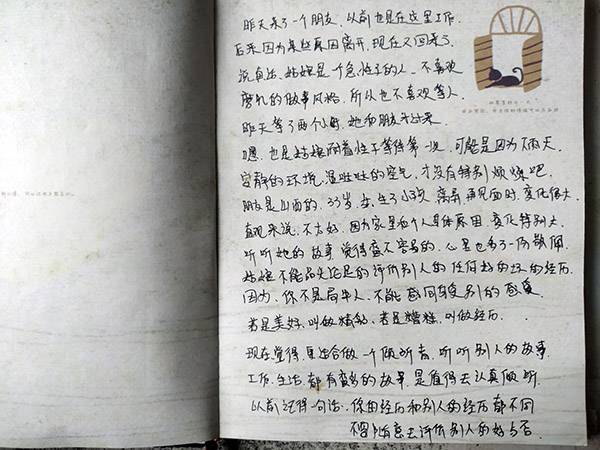 昨天来了一个朋友，以前也是在这里工作。
后来因为某些原因离开，现在又回来了。
说句话，姑娘是一个急性子的人，不喜欢
磨叽的做事风格，所以也不喜欢等人。
昨天等了两个小时，她和朋友才过来。
嗯，也是姑娘耐着性子等待第一次，可能是因为下雨天，
安静的环境，湿哒哒的空气，才没有特别烦燥吧。
朋友是山西的，33岁，女，生了小孩，离异，再见面时，变化很大
直观来说，不太好，因为家里和个人身体原因，变化特别大
听听她的故事，觉得蛮不容易的，心里也多了一份敬佩
姑娘不能品头论足的评价别人的任何好的坏的经历。
因为，你不是局中人，不能感同身受别的感受。
若是美好，叫做精彩，若是糟糕，叫做经历。
现在觉得，更适合做一个倾听者，听听别人的故事
工作，生活，都有蛮多的故事，是值得去认真倾听
以前记得一句话，你的经历和别人的经历都不同
不要随意去评价别人的好与否